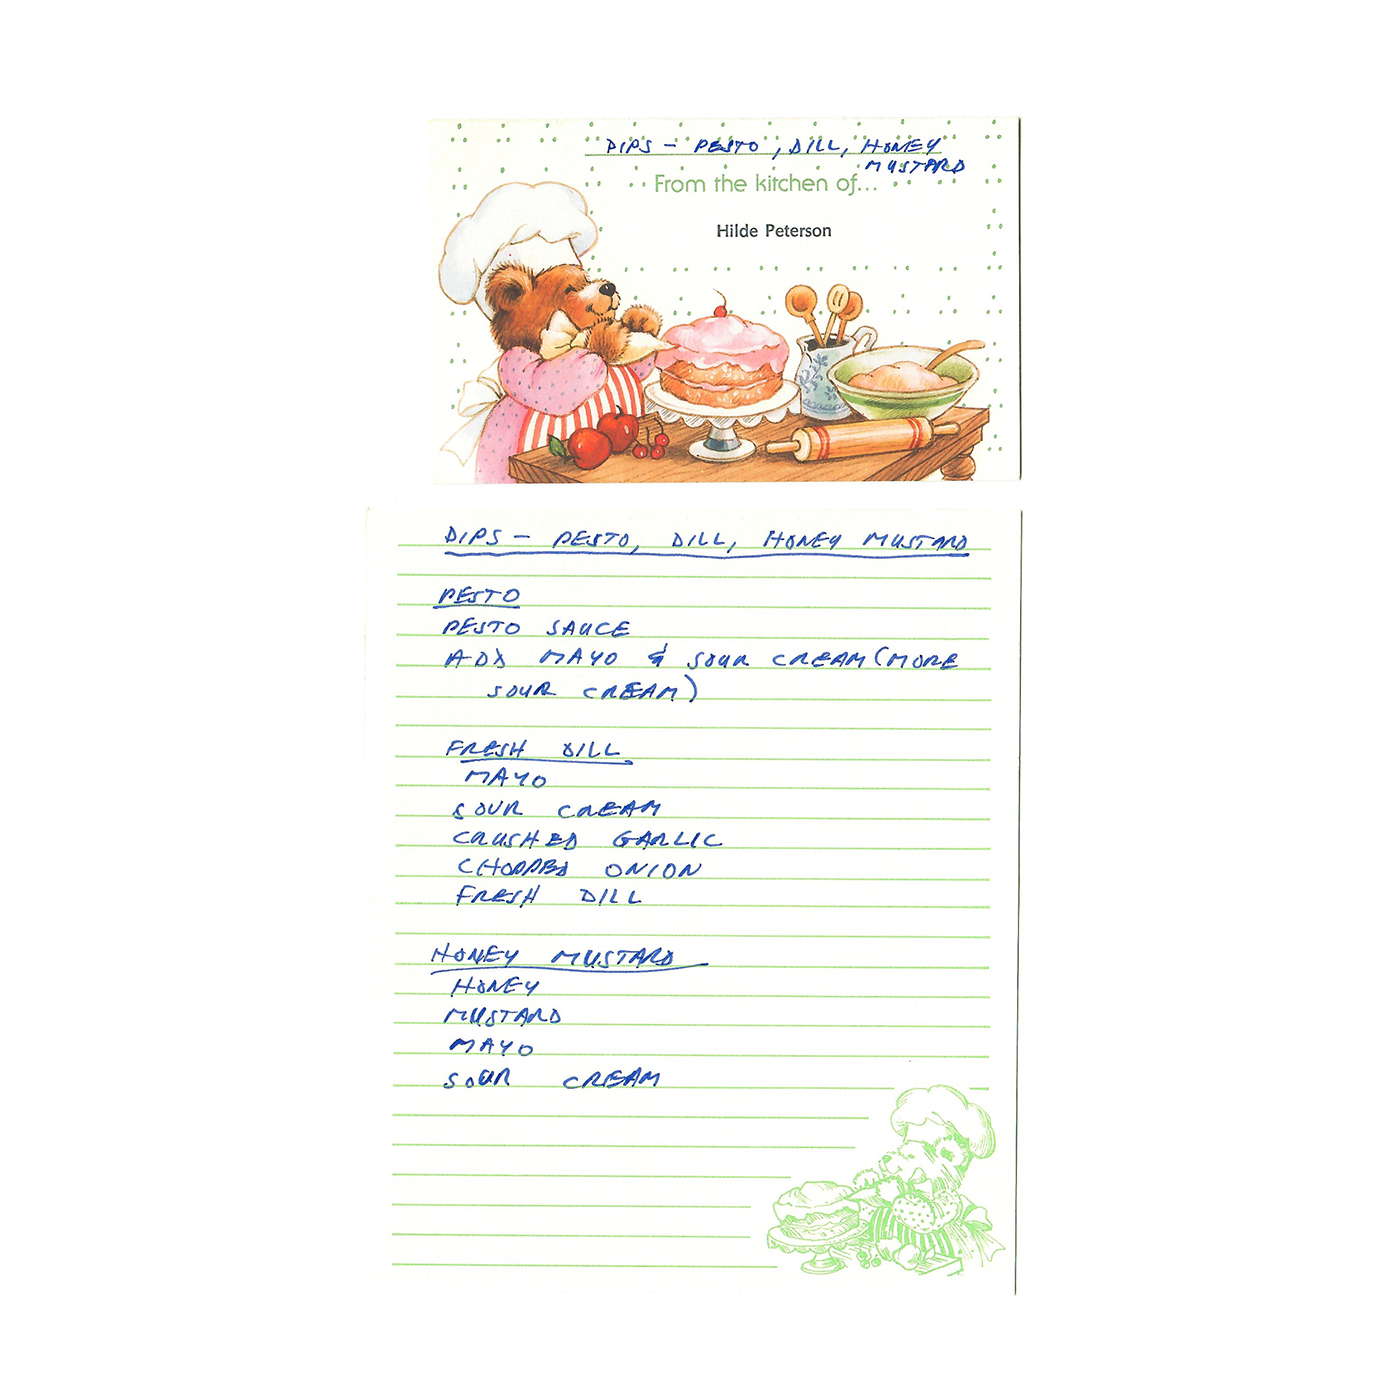 DIPS - PESTO, DILL, HONEY
MUSTARD
From the kitchen of...
Hilde Peterson
DIPS - PESTO, DILL, HONEY MUSTARD
PESTO
PESTO SAUCE
ADD MAYO & SOUR CREAM (MORE
SOUR CREAM)
FRESH DILL
MAYO
SOUR CREAM
CRUSHED GARLIC
CHOPPED ONION
FRESH DILL
HONEY MUSTARD
HONEY
MUSTARD
MAYO
SOUR CREAM